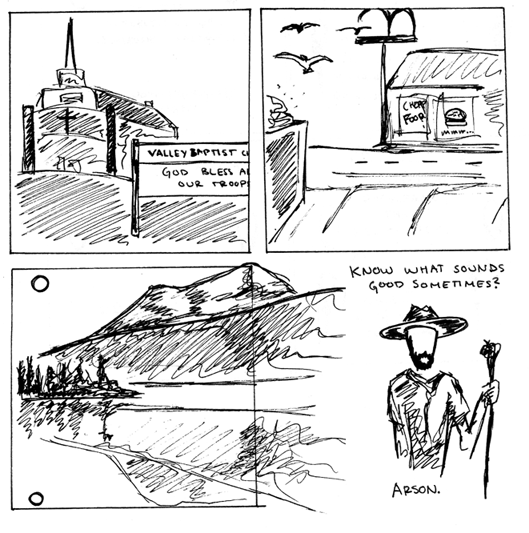 VALLEY BAPTIST C
GOD BLESS A
OUR TROOPS
CHEAP
FOOD
mmm...
KNOW WHAT SOUNDS
GOOD SOMETIMES?
ARSON.